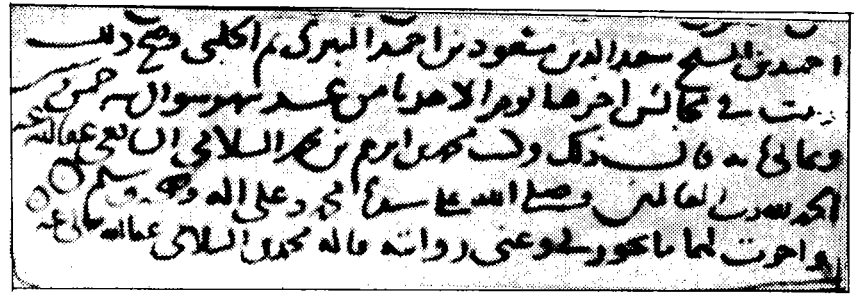 احمد بن الشيخ سعد الدين مسعود بن احمد البهركى ثم الحلبى وصح ذلك
وثبت فى مجالس اخرها يوم الاحد ثامن عشر شهر شوال سنة خمس
وثمانمائة قال ذلك وكتب محمد بن ابرهيم بن محمد السلامى الشافعى عفا الله عنه
الحمد لله رب العالمين وصلى الله على سيدنا محمد وعلى اله وصحبه وسلم
واجزت لهما ما يجوز لى وعنى روايته قاله محمد السلامى عفا الله تعالى عنه